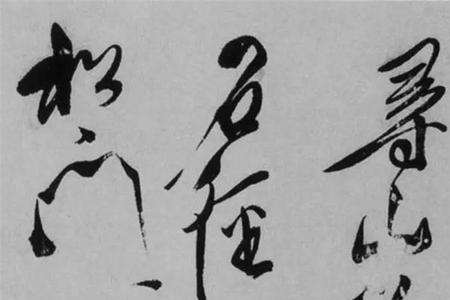 尋山
石徑
松門